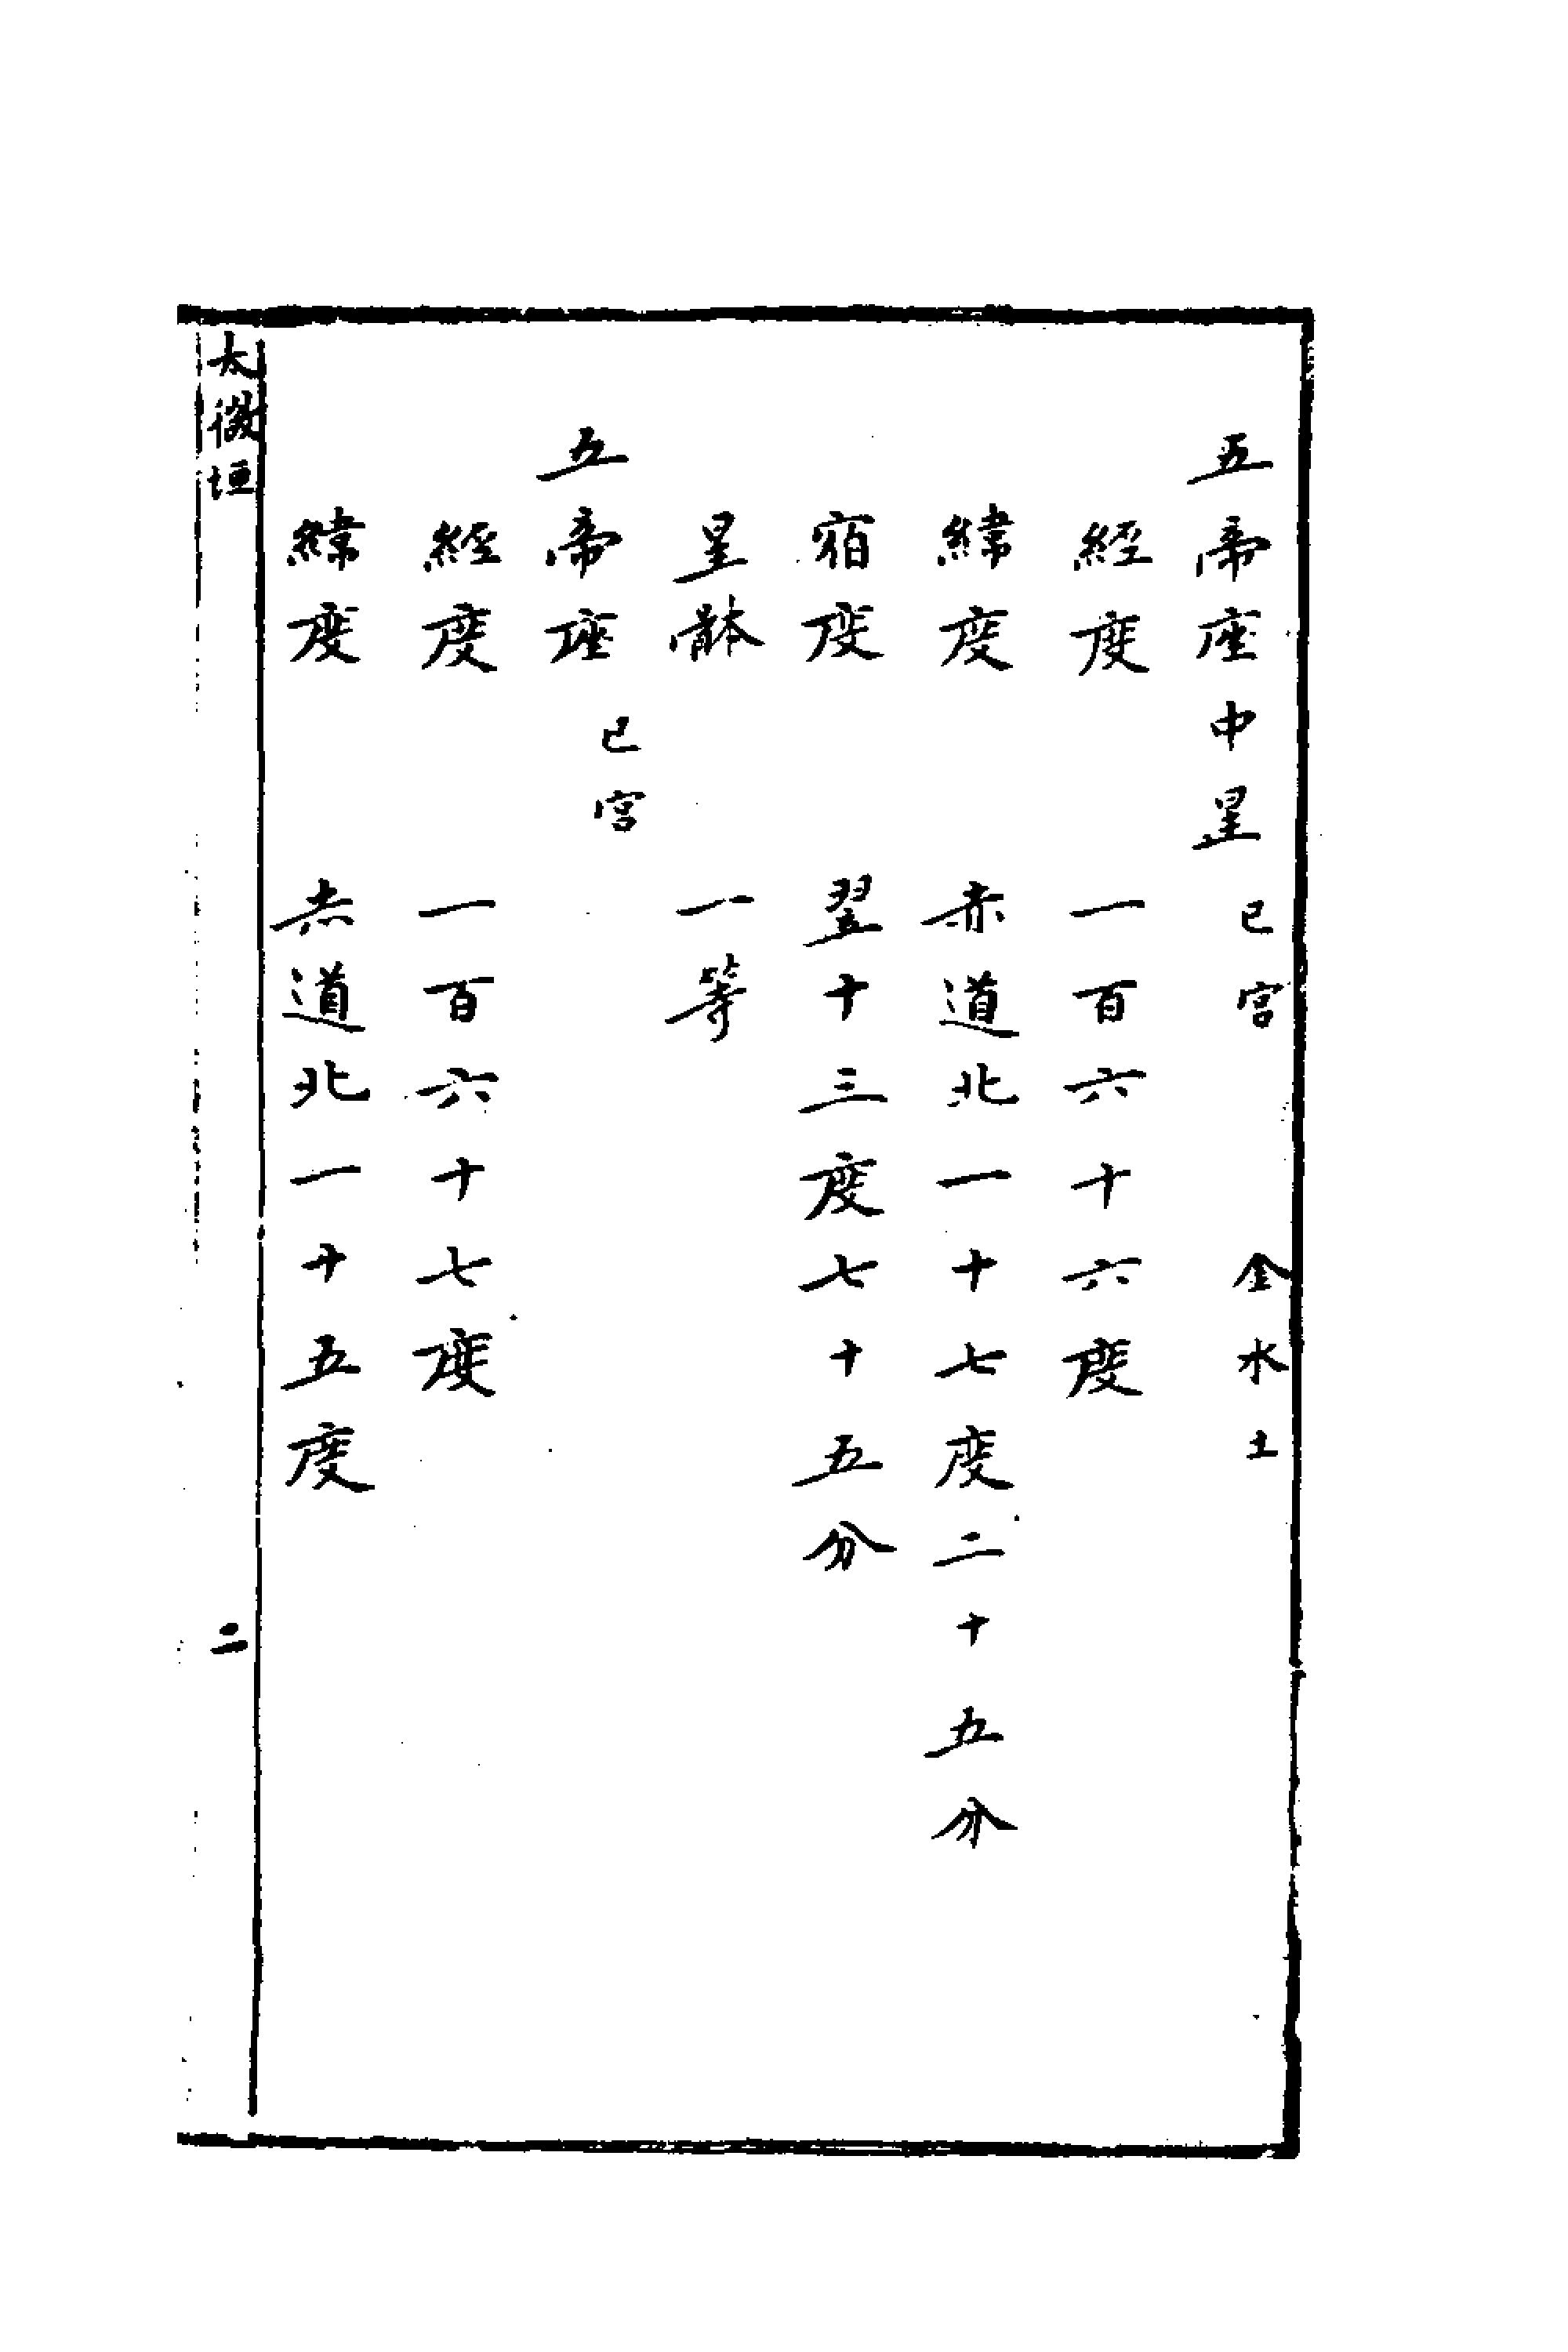 五帝座中星 巳宮 金水土
經度 一百六十六度
緯度 赤道北一十七度二十五分
宿度 翌十三度七十五分
星骵 一等
五帝座 巳宮
經度 一百六十七度
緯度 赤道北一十五度
太微垣 二